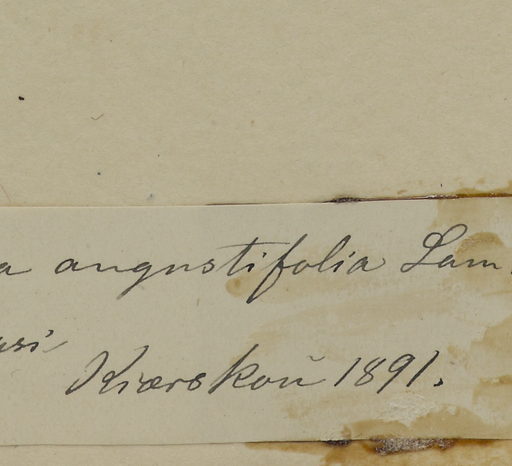 a angustifolia Lam.
usi
Kiærskou 1891.